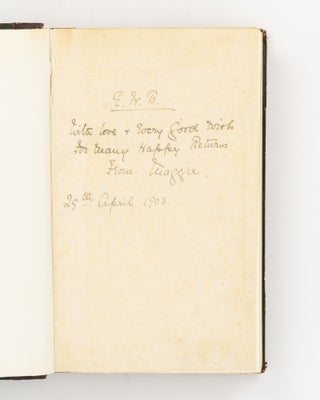 E. W. B.
With love & Every good wish
for many Happy Returns
From Maggie.
29th April 1903.